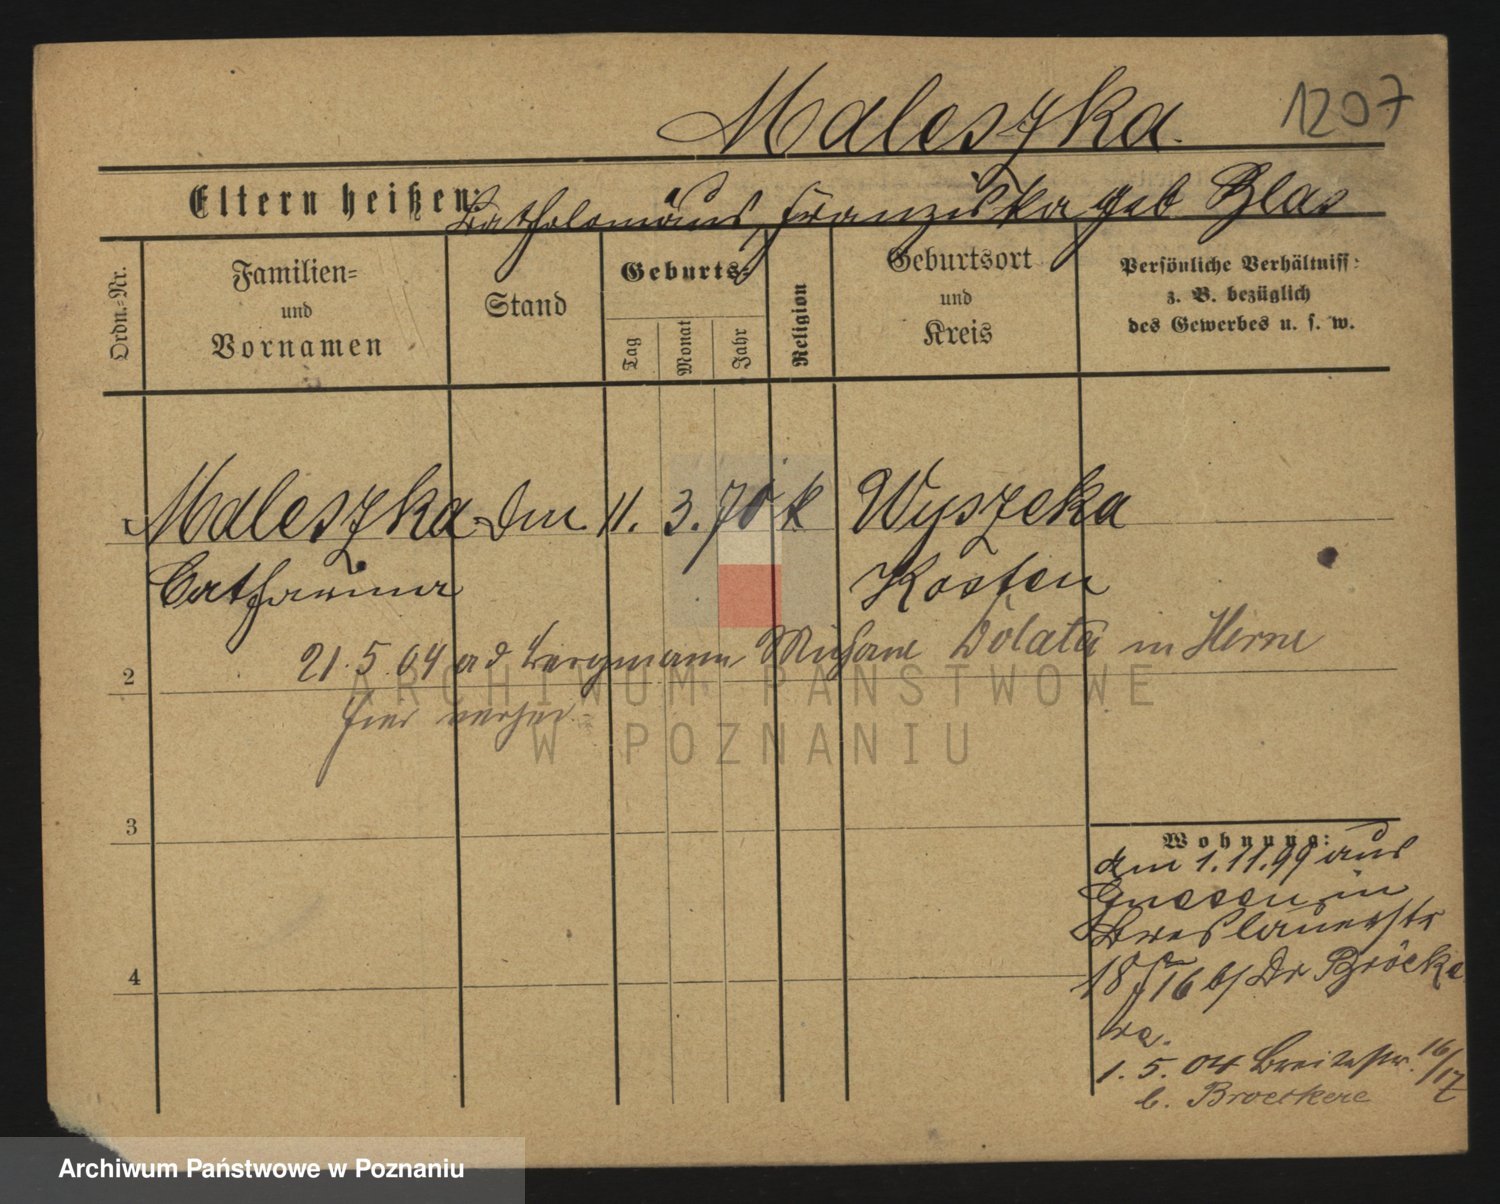 Maleszka. 1207
Eltern heißen: Batholomäus, Franziska geb Blas
Ordn.-Nr.
Familien-
und
Vornamen
Stand
Geburts-
Tag
Monat
Jahr
Religion
Geburtsort
und
Kreis
Persönliche Verhältniss
z. B. bezüglich
des Gewerbes u. s. w.
1 Maleszka 11. 3. 70 k Wyszeka
Catharina Kosten
21. 5. 04 Bergmann Dolata in Herne
2
hier
ARCHIWUM PAŃSTWOWE
W POZNANIU
3
4
Wohnung:
am 1.11.99 aus
Gnesen in
Breslauerstr
18 16 b/ Dr Bröcke
re.
1. 5. 04 Breitestr. 16/17
b. Broekere
Archiwum Państwowe w Poznaniu